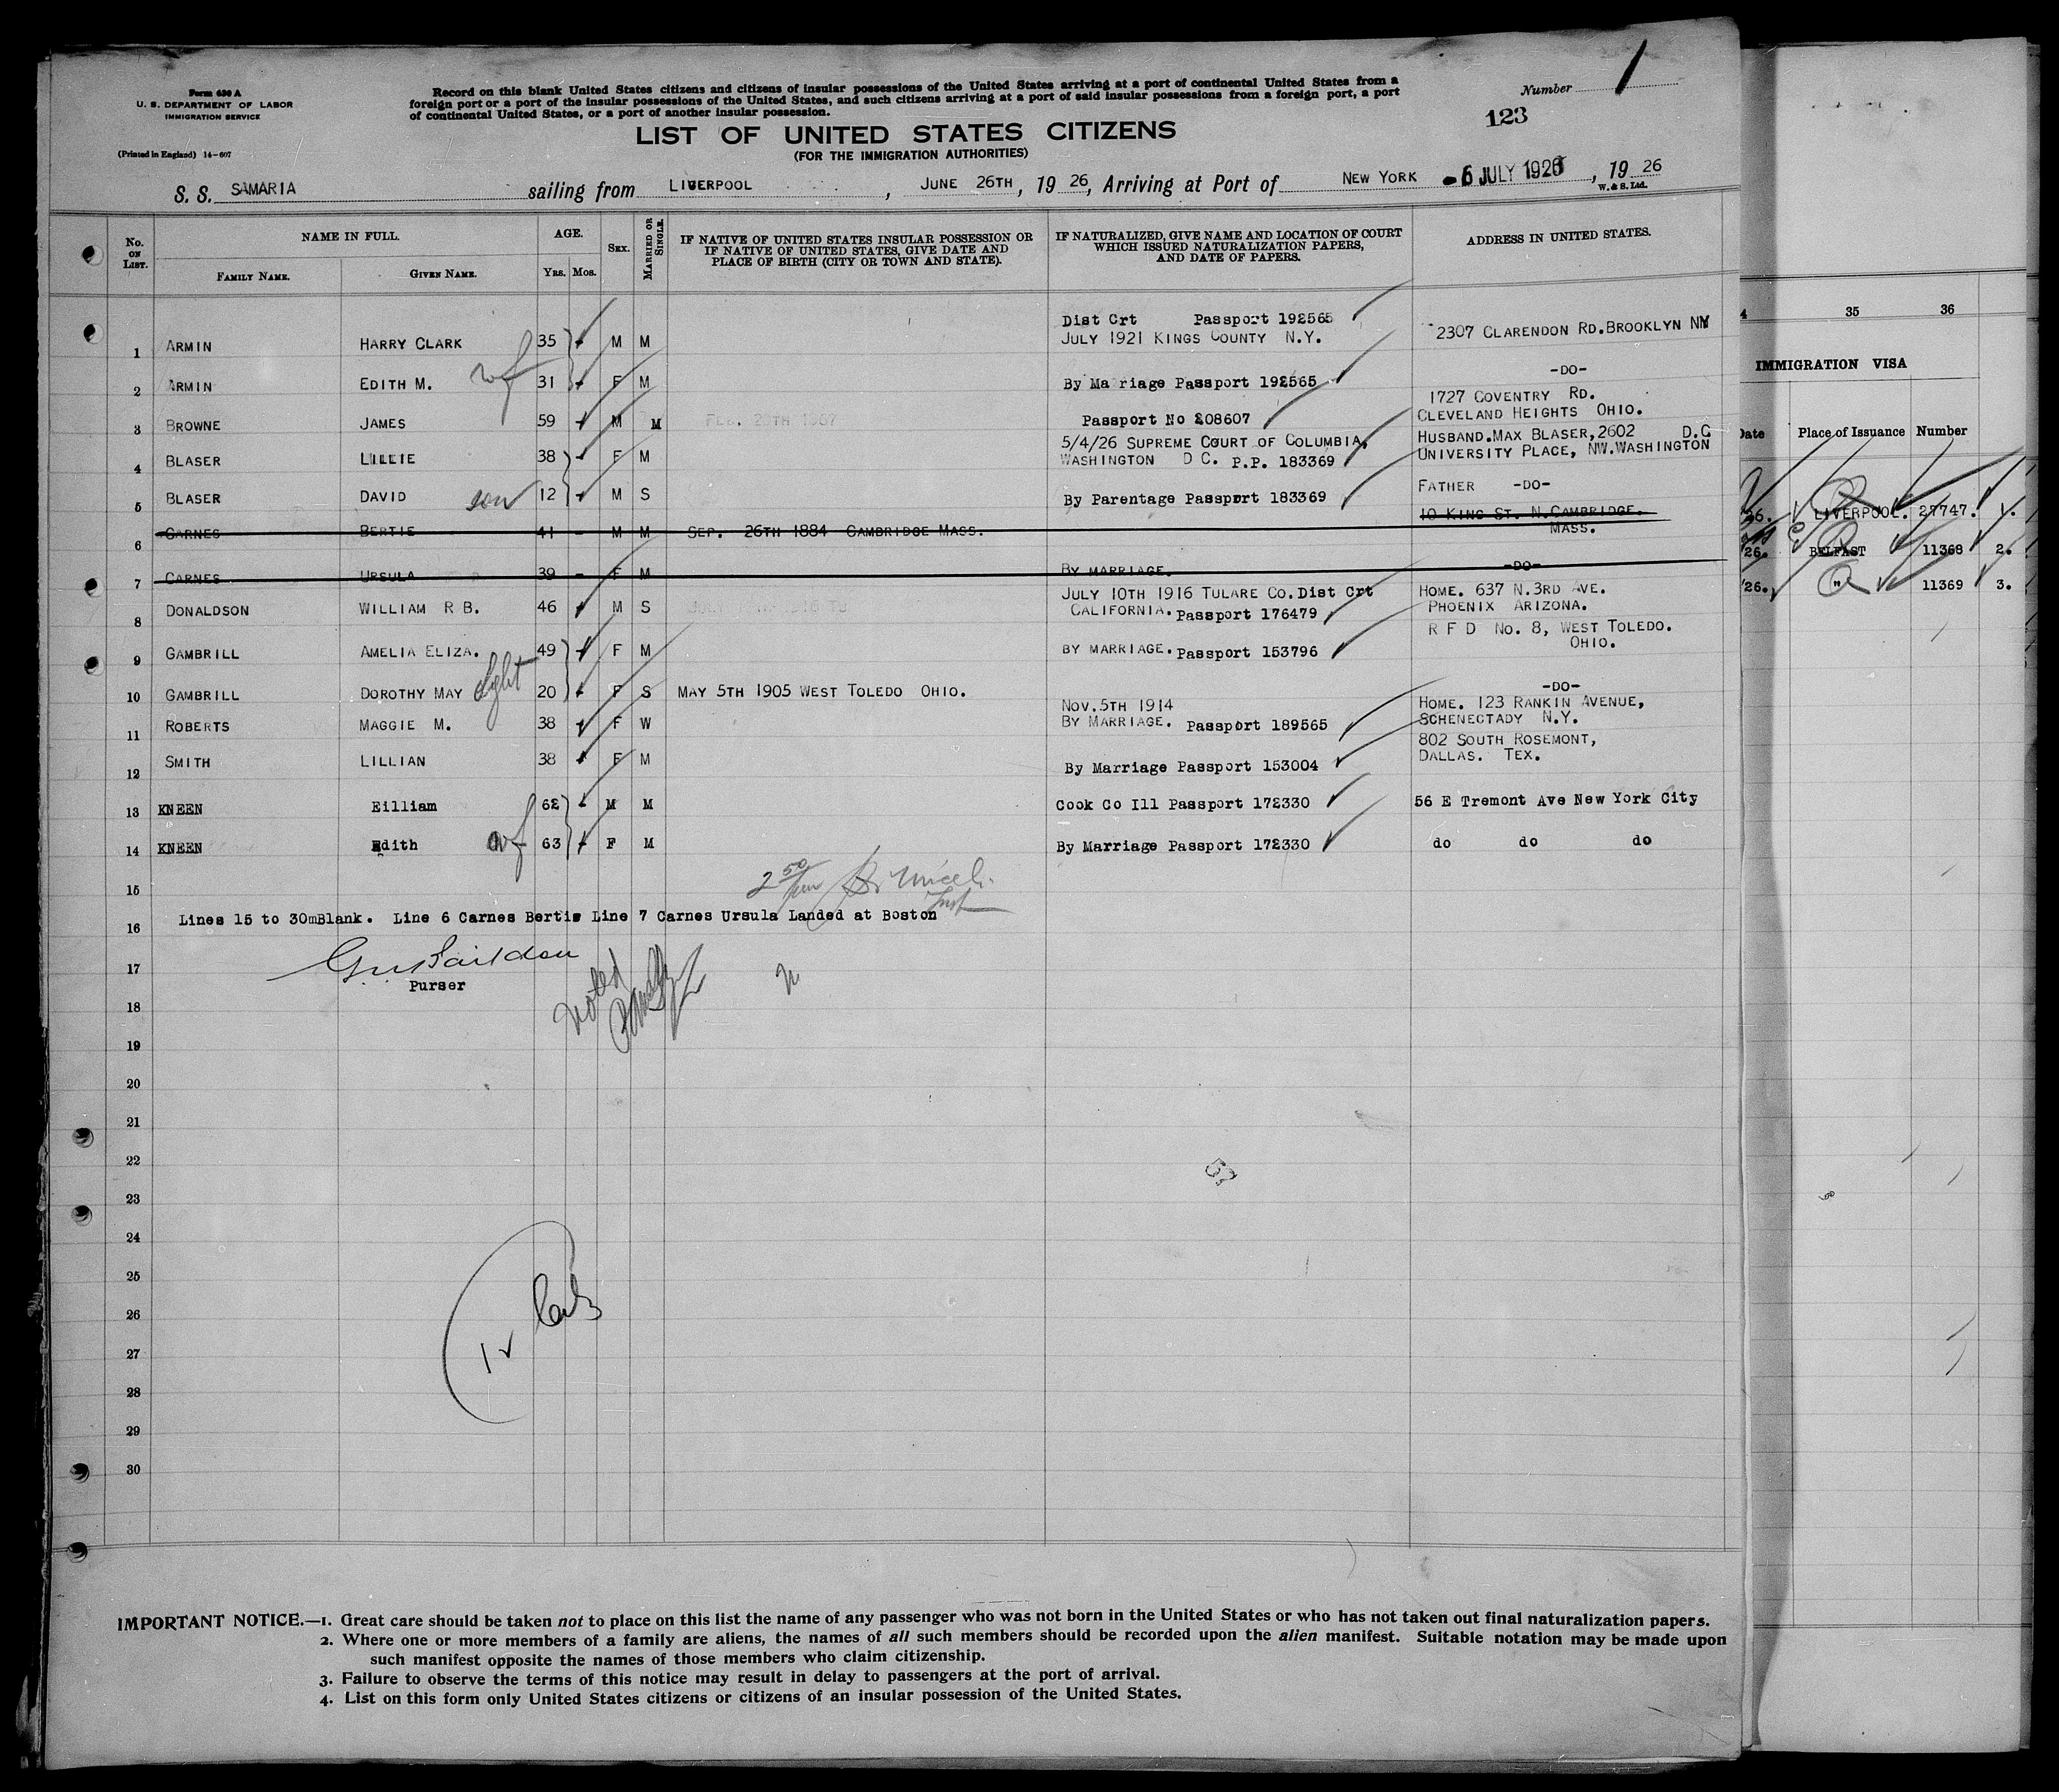 Form 630 A
U. S. DEPARTMENT OF LABOR
IMMIGRATION SERVICE
(Printed in England) 14-607
Record on this blank United States citizens and citizens of insular possessions of the United States arriving at a port of continental United States from a
foreign port or a port of the insular possessions of the United States, and such citizens arriving at a port of said insular possessions from a foreign port, a port
of continental United States, or a port of another insular possession.
Number 1
123
LIST OF UNITED STATES CITIZENS
(FOR THE IMMIGRATION AUTHORITIES)
S. S. SAMARIA sailing from LIVERPOOL, JUNE 26TH, 19 26, Arriving at Port of NEW YORK -6 JULY 1926, 19 26
W. & S. Ltd.
No. ON LIST. NAME IN FULL. AGE. SEX. MARRIED OR SINGLE. IF NATIVE OF UNITED STATES INSULAR POSSESSION OR IF NATIVE OF UNITED STATES, GIVE DATE AND PLACE OF BIRTH (CITY OR TOWN AND STATE). IF NATURALIZED, GIVE NAME AND LOCATION OF COURT WHICH ISSUED NATURALIZATION PAPERS, AND DATE OF PAPERS. ADDRESS IN UNITED STATES.
FAMILY NAME. GIVEN NAME. YRS. MOS.
Dist Crt Passport 192565
1 ARMIN HARRY CLARK 35 M M JULY 1921 KINGS COUNTY N.Y. 2307 CLARENDON RD.BROOKLYN NY
2 ARMIN EDITH M. wf 31 F M By Ma riage Passport 192565 -DO-
1727 COVENTRY RD.
3 BROWNE JAMES 59 M M FEB. 20TH 1867 Passport No 208607 CLEVELAND HEIGHTS OHIO.
5/4/26 SUPREME COURT OF COLUMBIA, HUSBAND.MAX BLASER,2602 D.C
4 BLASER LILLIE 38 F M WASHINGTON D C. P.P. 183369 UNIVERSITY PLACE, NW.WASHINGTON
5 BLASER DAVID son 12 M S By Parentage Passport 183369 FATHER -DO-
10 KING ST. N.CAMBRIDGE.
6 CARNES BERTIE 41 - M M SEP. 26TH 1884 CAMBRIDGE MASS. MASS.
7 CARNES URSULA 39 - F M BY MARRIAGE. -DO-
JULY 10TH 1916 TULARE CO.Dist Crt HOME. 637 N.3RD AVE.
8 DONALDSON WILLIAM R B. 46 M S CALIFORNIA. Passport 176479 PHOENIX ARIZONA.
R F D No. 8, WEST TOLEDO.
9 GAMBRILL AMELIA ELIZA. 49 F M BY MARRIAGE. Passport 153796 OHIO.
10 GAMBRILL DOROTHY MAY 20 F S MAY 5TH 1905 WEST TOLEDO OHIO. -DO-
NOV.5TH 1914 HOME. 123 RANKIN AVENUE,
11 ROBERTS MAGGIE M. 38 F W BY MARRIAGE. Passport 189565 SCHENECTADY N.Y.
802 SOUTH ROSEMONT,
12 SMITH LILLIAN 38 F M By Marriage Passport 153004 DALLAS. TEX.
13 KNEEN Eilliam 62 - M M Cook Co Ill Passport 172330 56 E Tremont Ave New York City
14 KNEEN Edith wf 63 F M By Marriage Passport 172330 do do do
15
16 Lines 15 to 30mBlank. Line 6 Carnes Bertie Line 7 Carnes Ursula Landed at Boston
17
Purser
Noted
18
19
20
21
22
23
24
25
26
27
28
29
30
IMPORTANT NOTICE.—1. Great care should be taken not to place on this list the name of any passenger who was not born in the United States or who has not taken out final naturalization papers.
2. Where one or more members of a family are aliens, the names of all such members should be recorded upon the alien manifest. Suitable notation may be made upon
such manifest opposite the names of those members who claim citizenship.
3. Failure to observe the terms of this notice may result in delay to passengers at the port of arrival.
4. List on this form only United States citizens or citizens of an insular possession of the United States.
35 36
IMMIGRATION VISA
Date Place of Issuance Number
26. LIVERPOOL. 27747. 1.
26. BELFAST 11368 2.
26. " 11369 3.